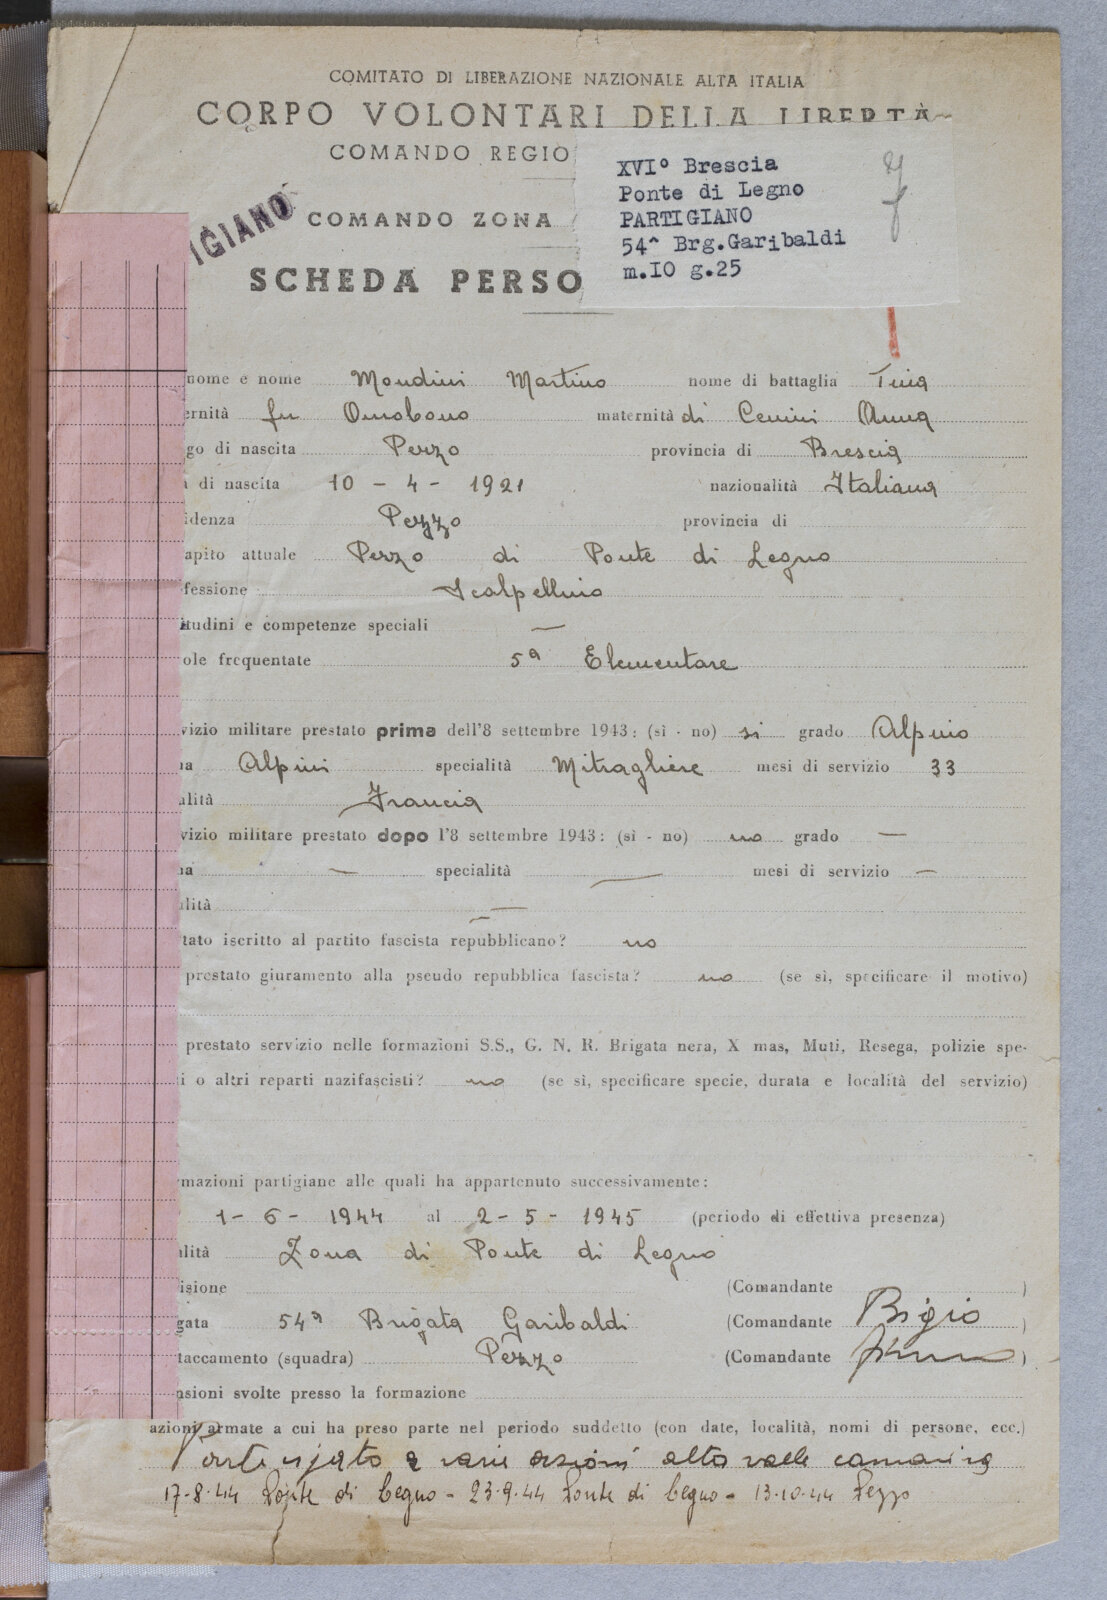 COMITATO DI LIBERAZIONE NAZIONALE ALTA ITALIA
CORPO VOLONTARI DELLA LIBERTÀ
COMANDO REGIO
XVI° Brescia
Ponte di Legno
PARTIGIANO
54^ Brg.Garibaldi
m.IO g.25
IGIANO
COMANDO ZONA
SCHEDA PERSO
nome e nome Mondini Martino nome di battaglia Tina
ernità fu Omobono maternità di Cenini Anna
go di nascita Pezzo provincia di Brescia
a di nascita 10 - 4 - 1921 nazionalità Italiana
idenza Pezzo provincia di
apito attuale Pezzo di Ponte di Legno
fessione Scalpellino
itudini e competenze speciali —
ole frequentate 5ª Elementare
vizio militare prestato prima dell'8 settembre 1943: (sì - no) si grado Alpino
na Alpini specialità Mitragliere mesi di servizio 33
alità Francia
vizio militare prestato dopo l'8 settembre 1943: (sì - no) no grado —
na — specialità — mesi di servizio —
alità —
tato iscritto al partito fascista repubblicano? no
prestato giuramento alla pseudo repubblica fascista? no (se sì, specificare il motivo)
prestato servizio nelle formazioni S.S., G. N. R. Brigata nera, X mas, Muti, Resega, polizie spe-
i o altri reparti nazifascisti? no (se sì, specificare specie, durata e località del servizio)
mazioni partigiane alle quali ha appartenuto successivamente:
1 - 6 - 1944 al 2 - 5 - 1945 (periodo di effettiva presenza)
alità Zona di Ponte di Legno
isione (Comandante )
gata 54ª Brigata Garibaldi (Comandante Bigio )
taccamento (squadra) Pezzo (Comandante )
nsioni svolte presso la formazione
azioni armate a cui ha preso parte nel periodo suddetto (con date, località, nomi di persone, ecc.)
a varie azioni alta valle camonica
17-8-44 Ponte di Legno - 23-9-44 Ponte di Legno - 13-10-44 Pezzo